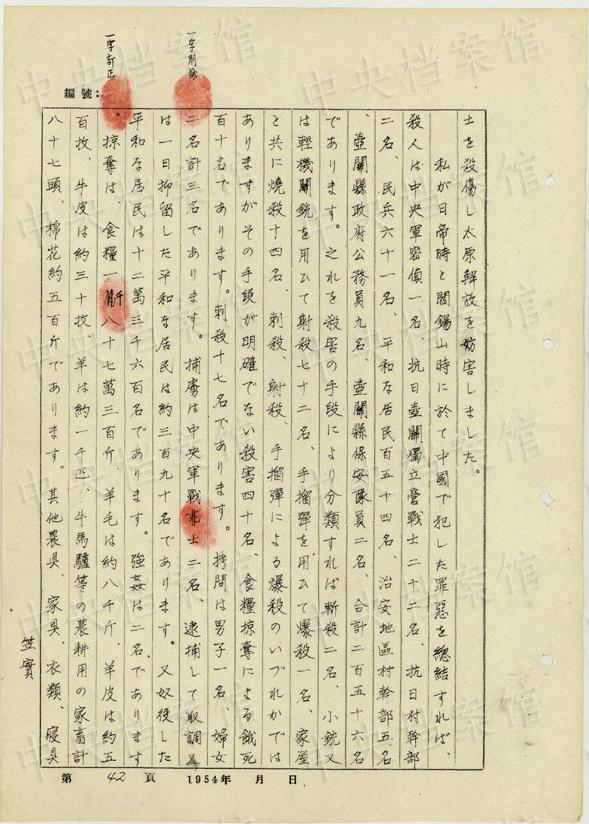 一字訂正
一字削除
編號:
士を殺傷し太原解放を妨害しました。
私が日帝時と閻錫山時に於て中國で犯した罪惡を總結すれば、
殺人は中央軍密偵一名、抗日壺關獨立營戰士二十二名、抗日村幹部
二名、民兵六十一名、平和な居民百五十四名、治安地區村幹部五名
、壺關縣政府公務員九名、壺關縣保安隊員二名、合計二百五十六名
であります。之れを殺害の手段により分類すれば斬殺二名、小銃又
は輕機關銃を用ひて射殺七十二名、手榴彈を用ひて爆殺一名、家屋
と共に燒殺十四名、刺殺、射殺、手榴彈による爆殺のいづれかでは
ありますがその手段が明確でない殺害四十名、食糧掠奪による餓死
百十名であります。刺殺十七名であります。拷問は男子一名、婦女
二名計三名であります。捕虜は中央軍戰士二名、逮捕して取調又
は一日抑留した平和な居民は約三百九十名であります。又奴役した
平和な居民は十二萬三千六百名であります。強姦は二名であります
。掠奪は、食糧一千八十七萬三百斤、羊毛は約八千斤 羊皮は約五
百枚、牛皮は約三十枚、羊は約一千匹、牛馬驢等の農耕用の家畜計
八十七頭、棉花約五百斤であります。其他農具、家具、衣類、寢具
笠實
第 42 頁 1954年 月 日
中央档案馆